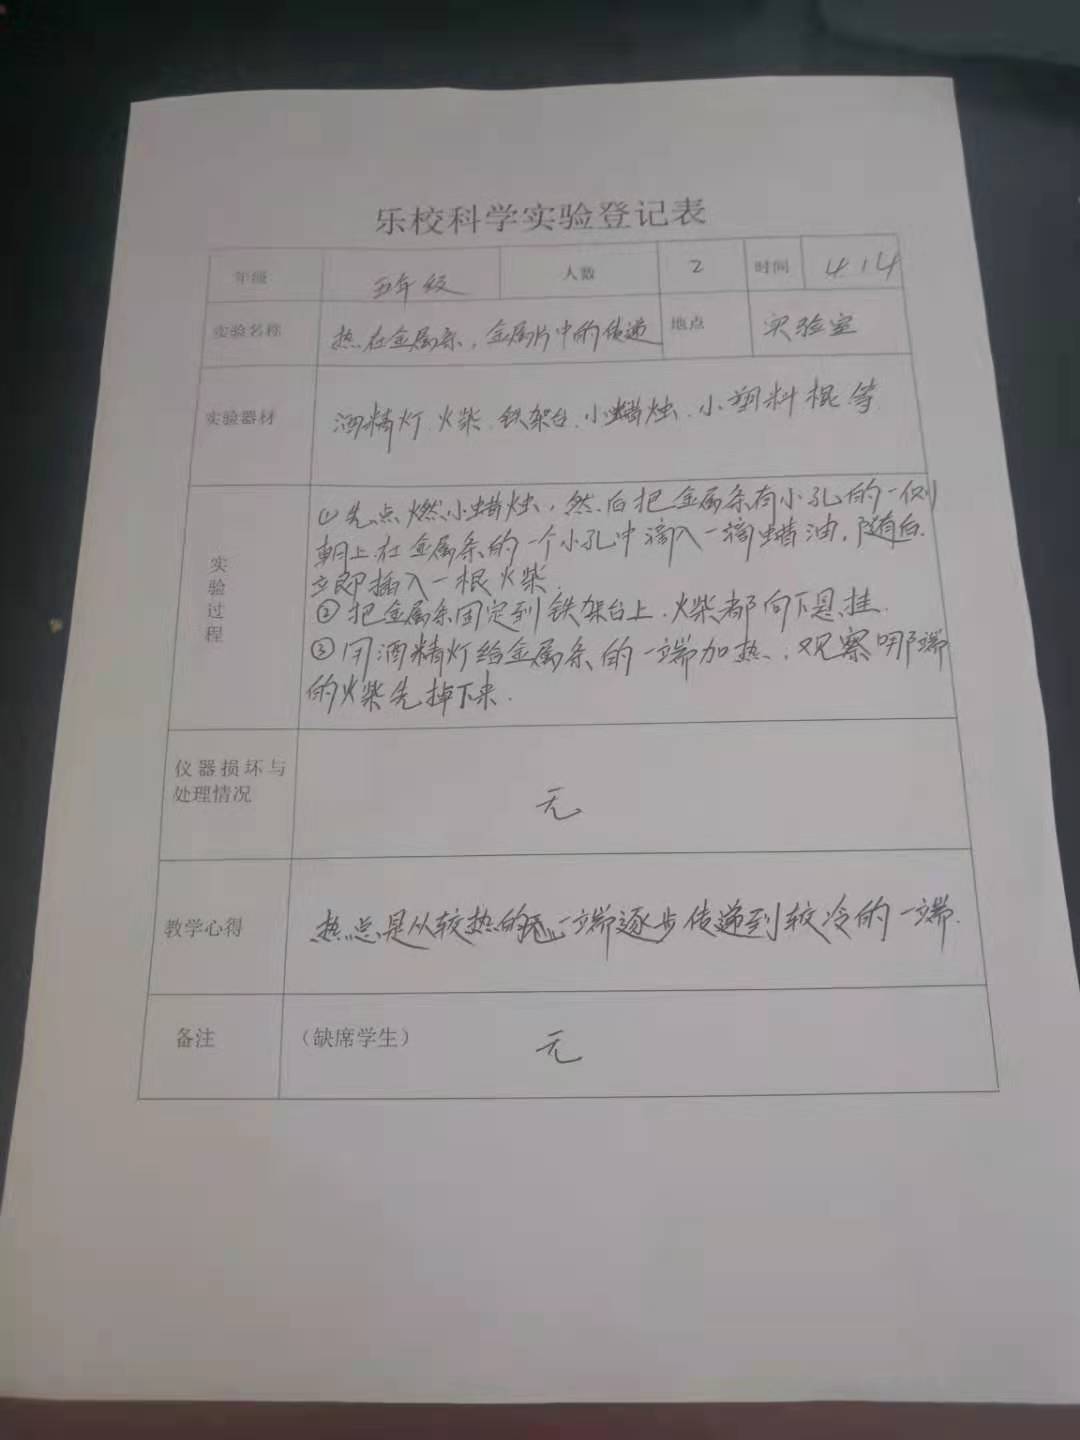 乐校科学实验登记表
年级 五年级 人数 2 时间 4.14
实验名称 热在金属条、金属片中的传递 地点 实验室
实验器材 酒精灯.火柴.铁架台.小蜡烛.小塑料棍等
实验过程
①先点燃小蜡烛,然后把金属条有小孔的一侧
朝上.在金属条的一个小孔中滴入一滴蜡油,随后
立即插入一根火柴.
②把金属条固定到铁架台上.火柴都向下悬挂.
③用酒精灯给金属条的一端加热.观察哪端
的火柴先掉下来.
仪器损坏与
处理情况 无
教学心得 热总是从较热的一端逐步传递到较冷的一端.
备注 (缺席学生) 无